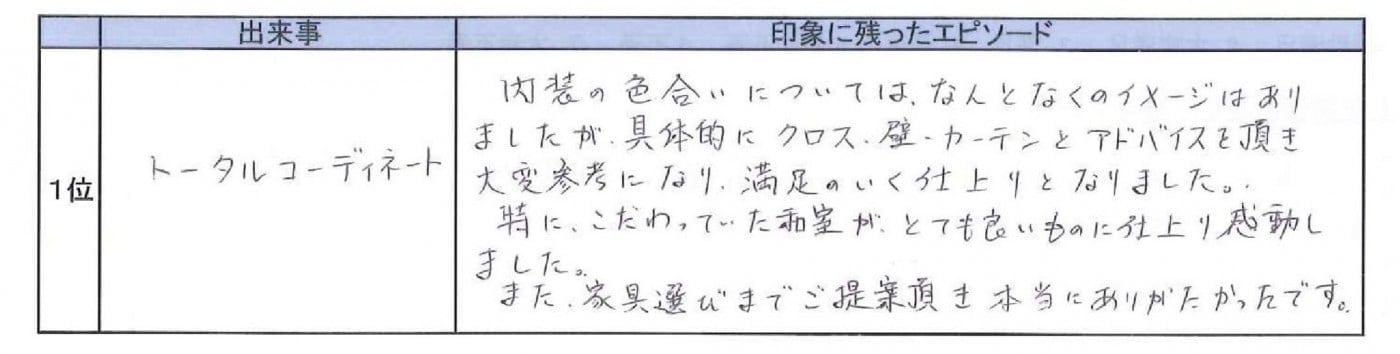 出来事 印象に残ったエピソード
1位 トータルコーディネート
内装の色合いについては、なんとなくのイメージはあり
ましたが、具体的にクロス、壁・カーテンとアドバイスを頂き
大変参考になり、満足のいく仕上りとなりました。
特に、こだわっていた和室が、とても良いものに仕上り感動し
ました。
また、家具選びまでご提案頂き本当にありがたかったです。